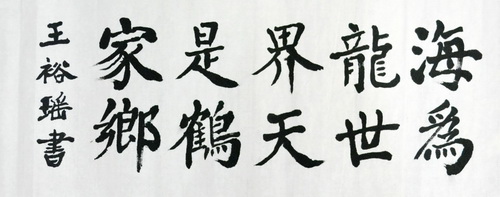 海為
龍世
界天
是鶴
家鄉
王裕瑶書